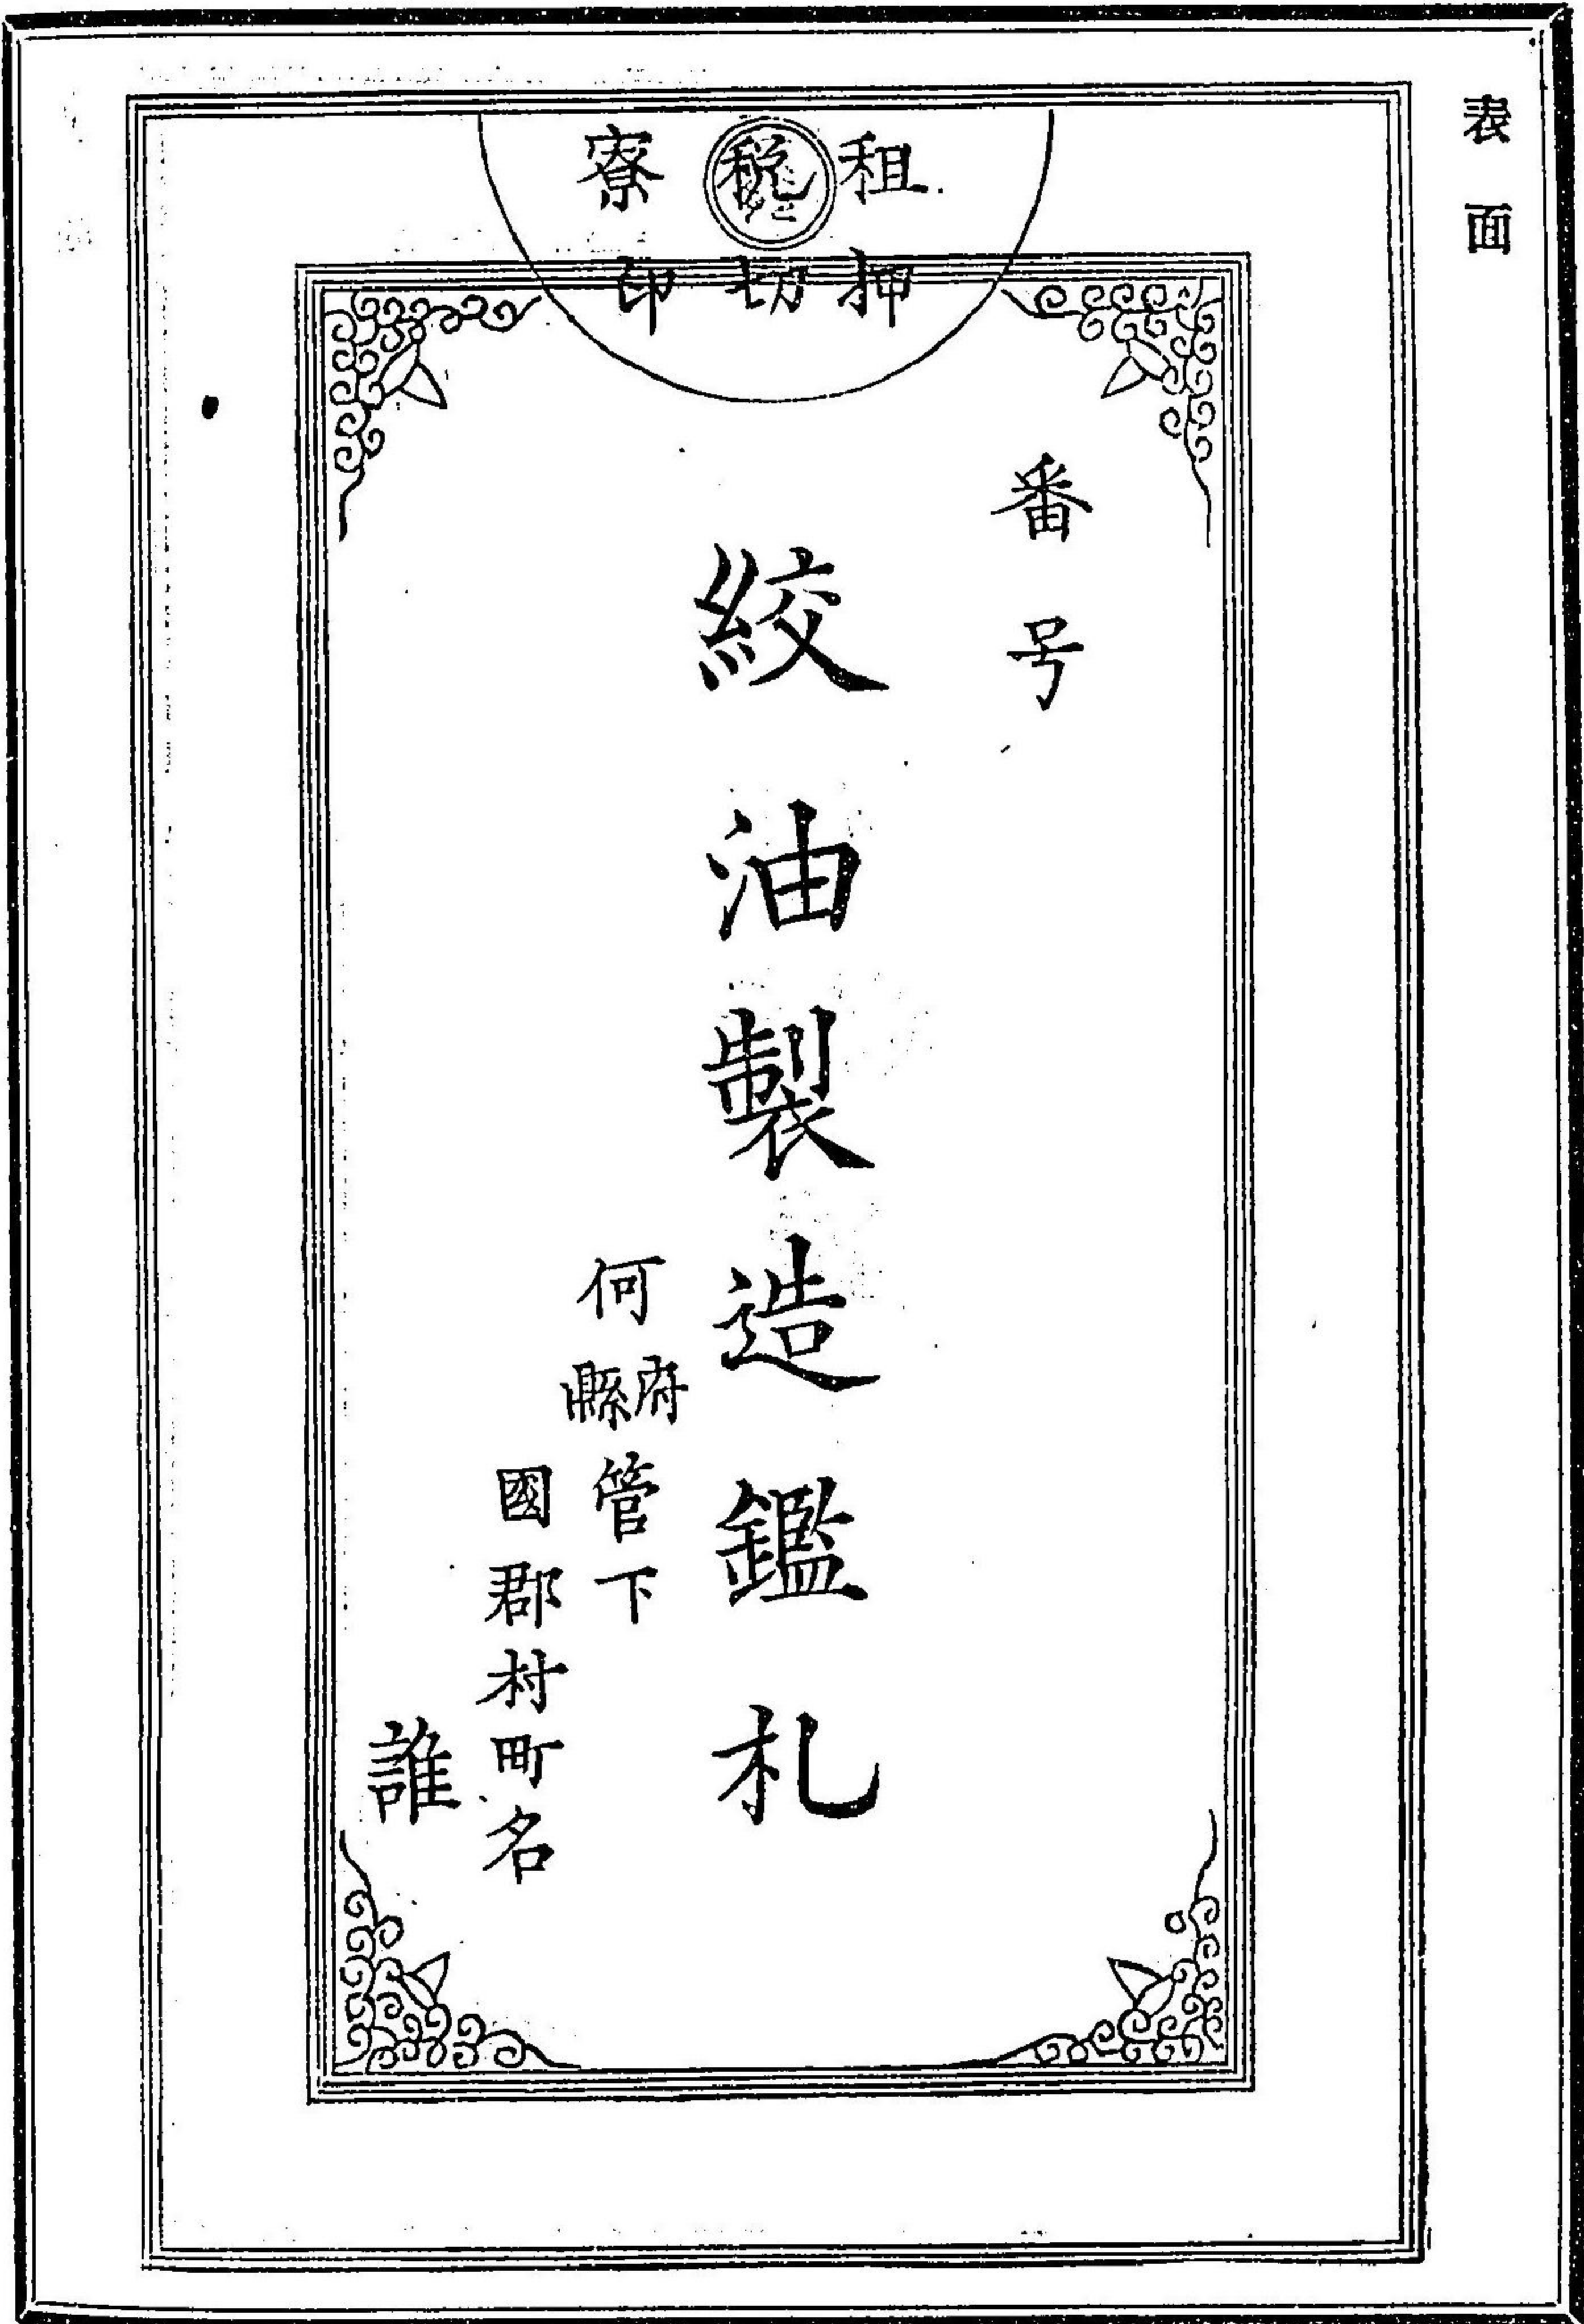 表面
租税寮
押切印
番号
絞油製造鑑札
何府縣管下
國郡村町名
誰